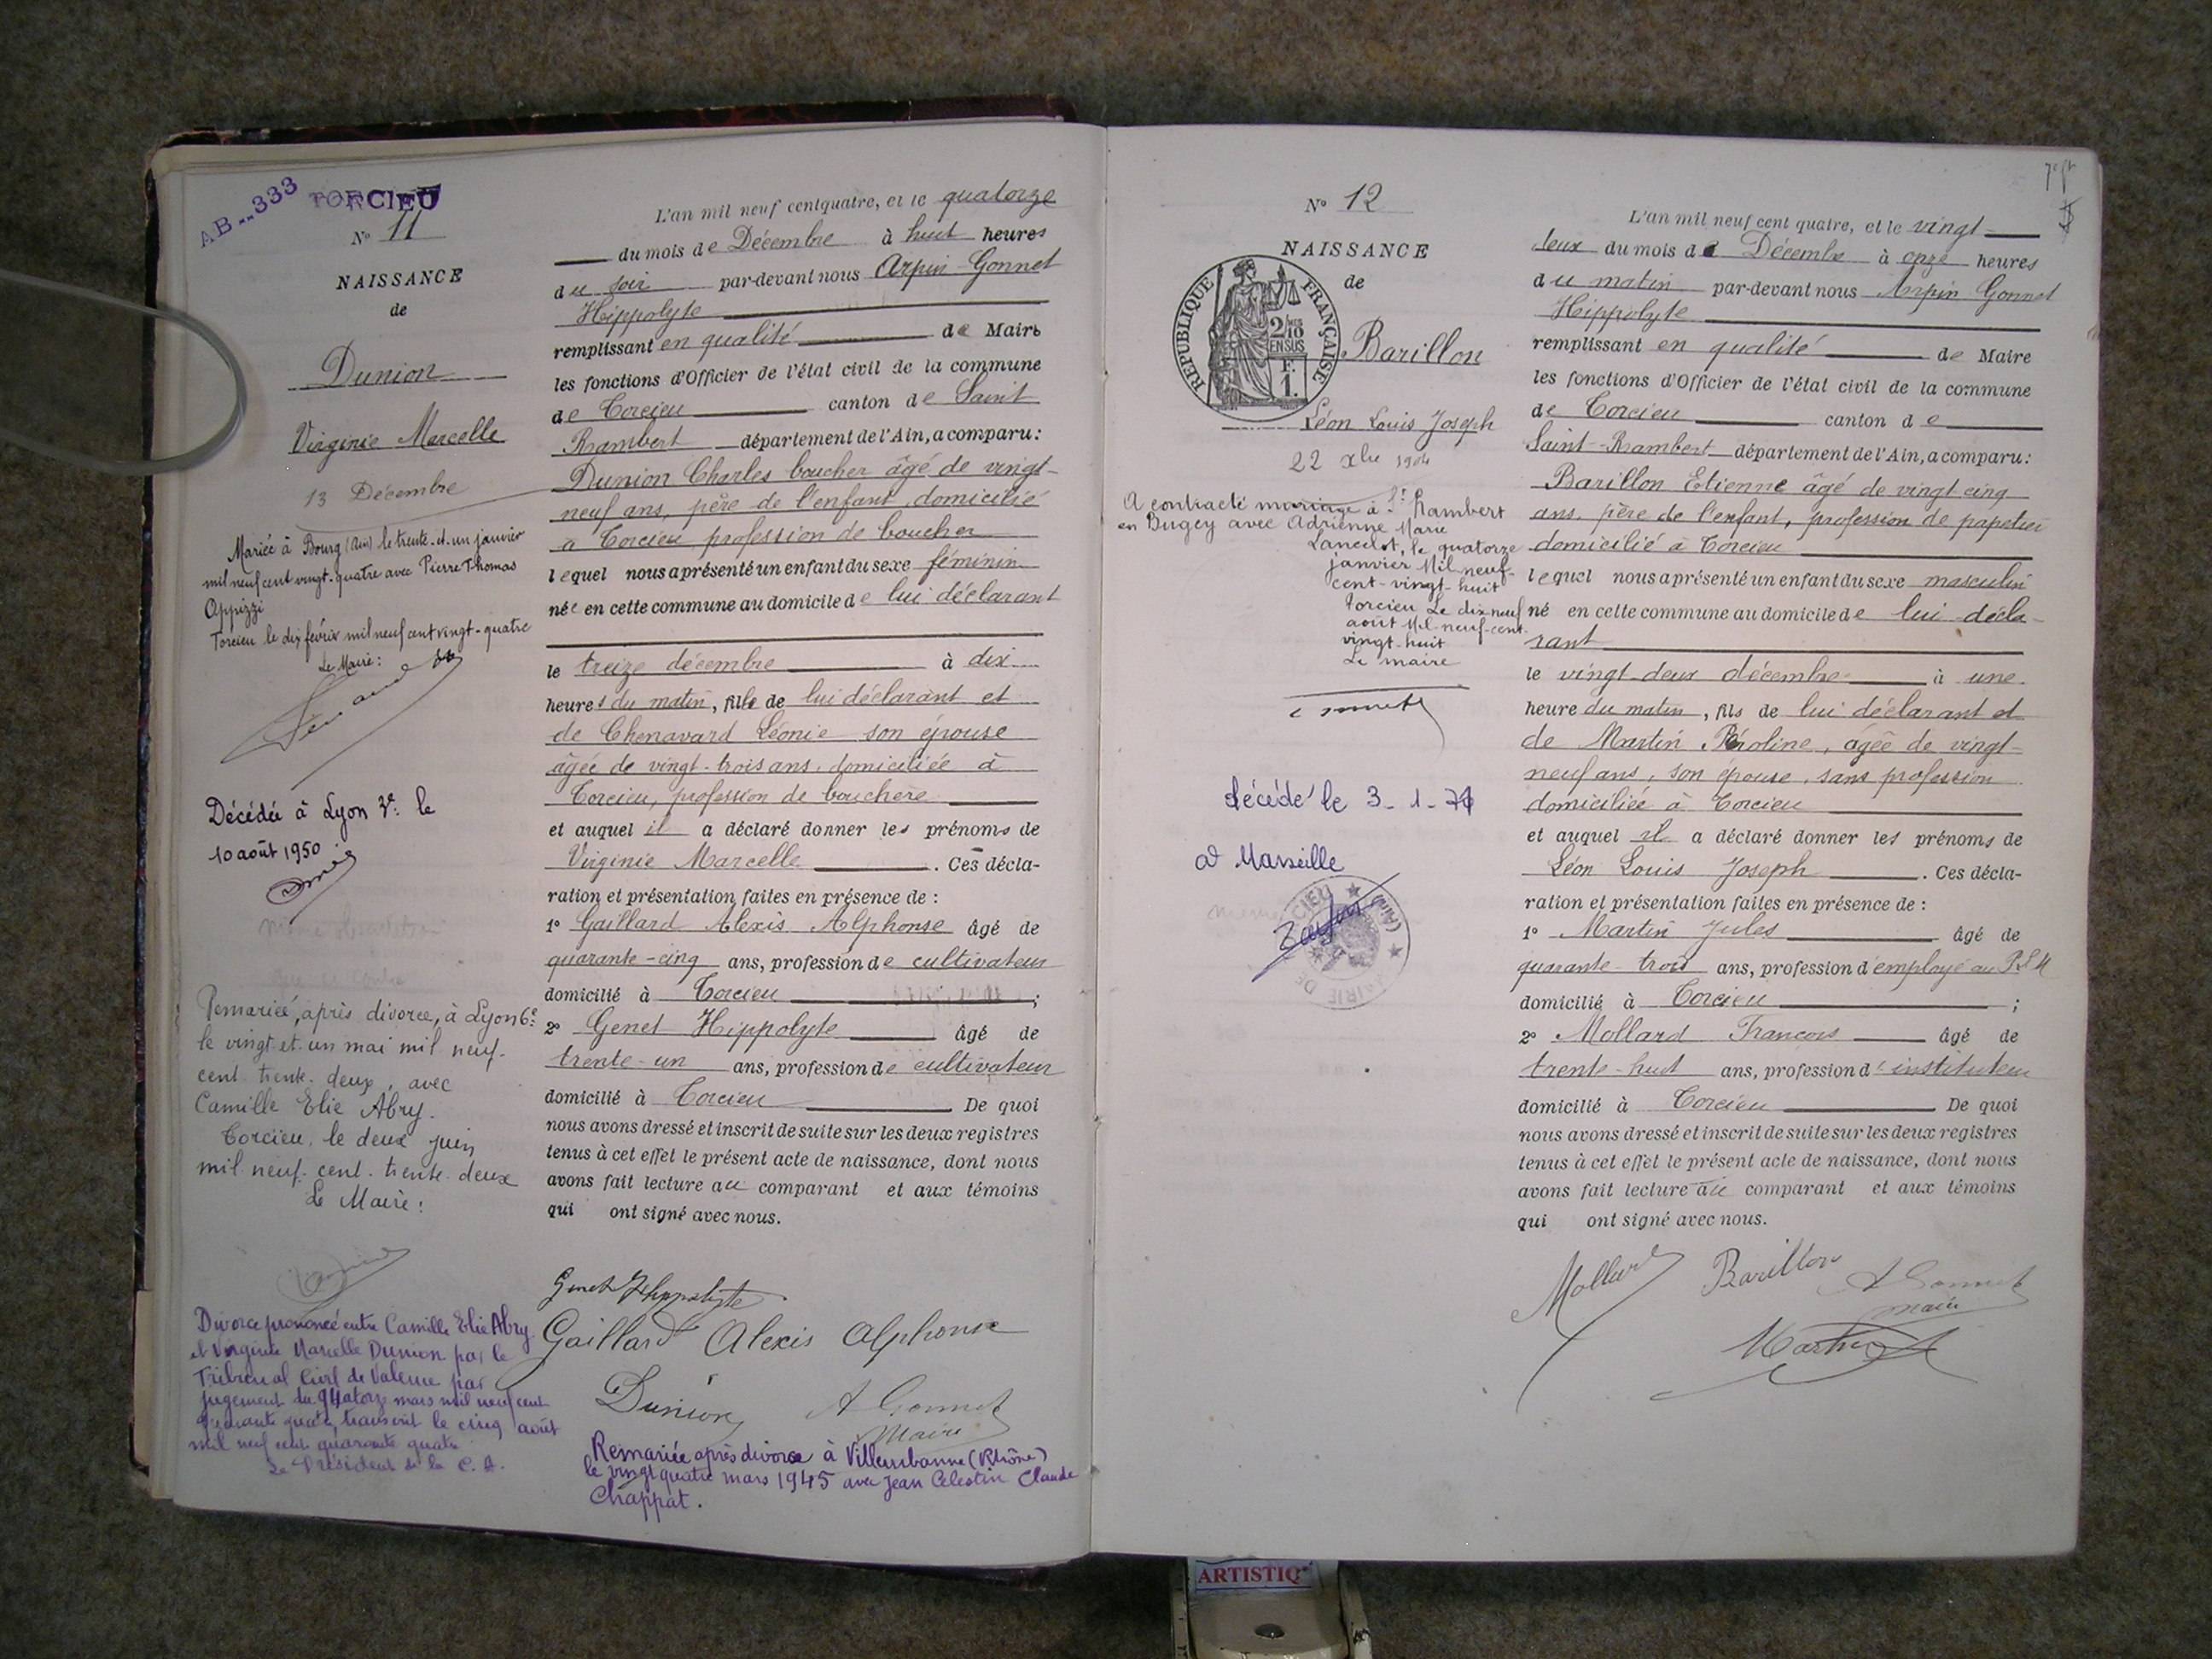 AB--333 TORCIEU
N° 11
NAISSANCE
de
Dunion
Virginie Marcelle
13 Décembre
Mariée à Bourg (Ain) le trente-et-un janvier
mil neuf cent vingt-quatre avec Pierre Thomas
Appizzi
Torcieu le dix février mil neuf cent vingt-quatre
Le Maire:
Décédée à Lyon 3e le
10 août 1950
Remariée, après divorce, à Lyon 6e
le vingt-et-un mai mil neuf-
cent trente-deux, avec
Camille Elie Abry.
Torcieu, le deux juin
mil neuf-cent-trente-deux
Le Maire:
Divorce prononcé entre Camille Elie Abry
et Virginie Marcelle Dunion par le
Tribunal Civil de Valence par
jugement du quatorze mars mil neuf cent
quarante quatre, transcrit le cinq août
mil neuf cent quarante quatre
Le Président de la
L'an mil neuf cent quatre, et le quatorze
du mois de Décembre à huit heures
du soir par-devant nous Arpin-Gonnet
Hippolyte
remplissant en qualité de Maire
les fonctions d'Officier de l'état civil de la commune
de Torcieu canton de Saint
Rambert département de l'Ain, a comparu:
Dunion Charles boucher âgé de vingt-
neuf ans, père de l'enfant, domicilié
à Torcieu profession de boucher
lequel nous a présenté un enfant du sexe féminin
née en cette commune au domicile de lui déclarant
le treize décembre à dix
heures du matin, fille de lui déclarant et
de Chenavard Léonie son épouse
âgée de vingt-trois ans, domiciliée à
Torcieu, profession de bouchère
et auquel il a déclaré donner les prénoms de
Virginie Marcelle. Ces décla-
ration et présentation faites en présence de :
1° Gaillard Alexis Alphonse âgé de
quarante-cinq ans, profession de cultivateur
domicilié à Torcieu ;
2° Genet Hippolyte âgé de
trente-un ans, profession de cultivateur
domicilié à Torcieu De quoi
nous avons dressé et inscrit de suite sur les deux registres
tenus à cet effet le présent acte de naissance, dont nous
avons fait lecture au comparant et aux témoins
qui ont signé avec nous.
Genet Hippolyte
Gaillard Alexis Alphonse
Dunion A Gonnet
Maire
Remariée après divorce à Villeurbanne (Rhône)
le vingt quatre mars 1945 avec Jean Célestin Claude
Chappat.
N° 12
NAISSANCE
de
REPUBLIQUE FRANÇAISE
2/10
EN SUS
F.
1.
Barillon
Léon Louis Joseph
22 xbre 1904
A contracté mariage à St Rambert
en Bugey avec Adrienne Marie
Lancelot, le quatorze
janvier Mil-neuf-
cent-vingt-huit
Torcieu Le dix neuf
août Mil-neuf-cent-
vingt-huit
Le maire
décédé le 3-1-71
à Marseille
L'an mil neuf cent quatre, et le vingt-
deux du mois de Décembre à onze heures
du matin par-devant nous Arpin Gonnet
Hippolyte
remplissant en qualité de Maire
les fonctions d'Officier de l'état civil de la commune
de Torcieu canton de
Saint-Rambert département de l'Ain, a comparu:
Barillon Etienne âgé de vingt cinq
ans, père de l'enfant, profession de papetier
domicilié à Torcieu
lequel nous a présenté un enfant du sexe masculin
né en cette commune au domicile de lui décla-
rant
le vingt-deux décembre à une
heure du matin, fils de lui déclarant et
de Martin, âgée de vingt-
neuf ans, son épouse, sans profession
domiciliée à Torcieu
et auquel il a déclaré donner les prénoms de
Léon Louis Joseph. Ces décla-
ration et présentation faites en présence de :
1° Martin Jules âgé de
quarante-trois ans, profession d'employé au
domicilié à Torcieu ;
2° Mollard Francois âgé de
trente-huit ans, profession d'instituteur
domicilié à Torcieu De quoi
nous avons dressé et inscrit de suite sur les deux registres
tenus à cet effet le présent acte de naissance, dont nous
avons fait lecture au comparant et aux témoins
qui ont signé avec nous.
Mollard Barillon A Gonnet
maire
Martin
ARTISTIQ